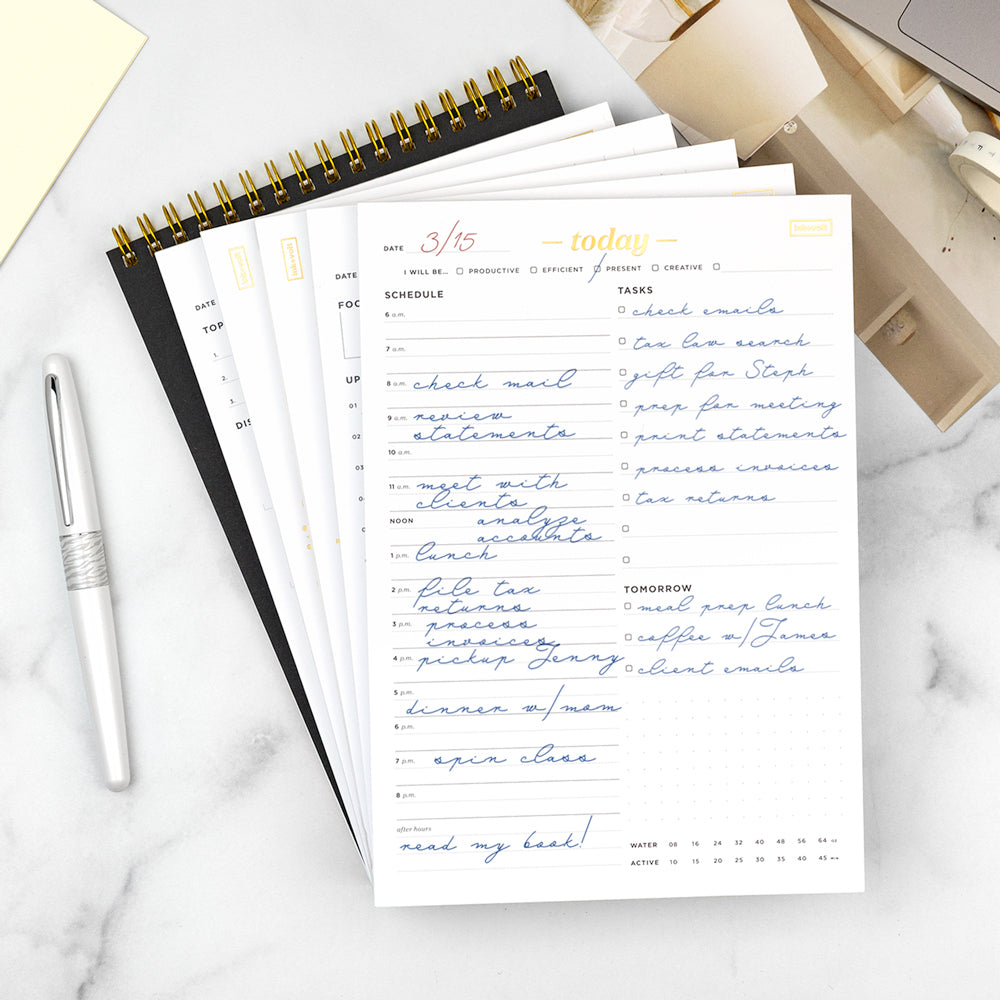 DATE
TOP
1.
2.
3.
DIS
inkwell
DATE
FOC
UP
01
02
03
DATE 3/15
— today —
I WILL BE... PRODUCTIVE EFFICIENT PRESENT CREATIVE
SCHEDULE
6 a.m.
7 a.m.
8 a.m. check mail
9 a.m. review
statements
10 a.m.
11 a.m. meet with
clients
NOON analyze
accounts
1 p.m. lunch
2 p.m. file tax
returns
3 p.m. process
invoices
4 p.m. pickup Jenny
5 p.m.
dinner w/mom
6 p.m.
7 p.m. spin class
8 p.m.
after hours
read my book!
TASKS
check emails
tax law search
gift for Steph
prep for meeting
print statements
process invoices
tax returns
TOMORROW
meal prep lunch
coffee w/James
client emails
WATER 08 16 24 32 40 48 56 64 oz
ACTIVE 10 15 20 25 30 35 40 45 min